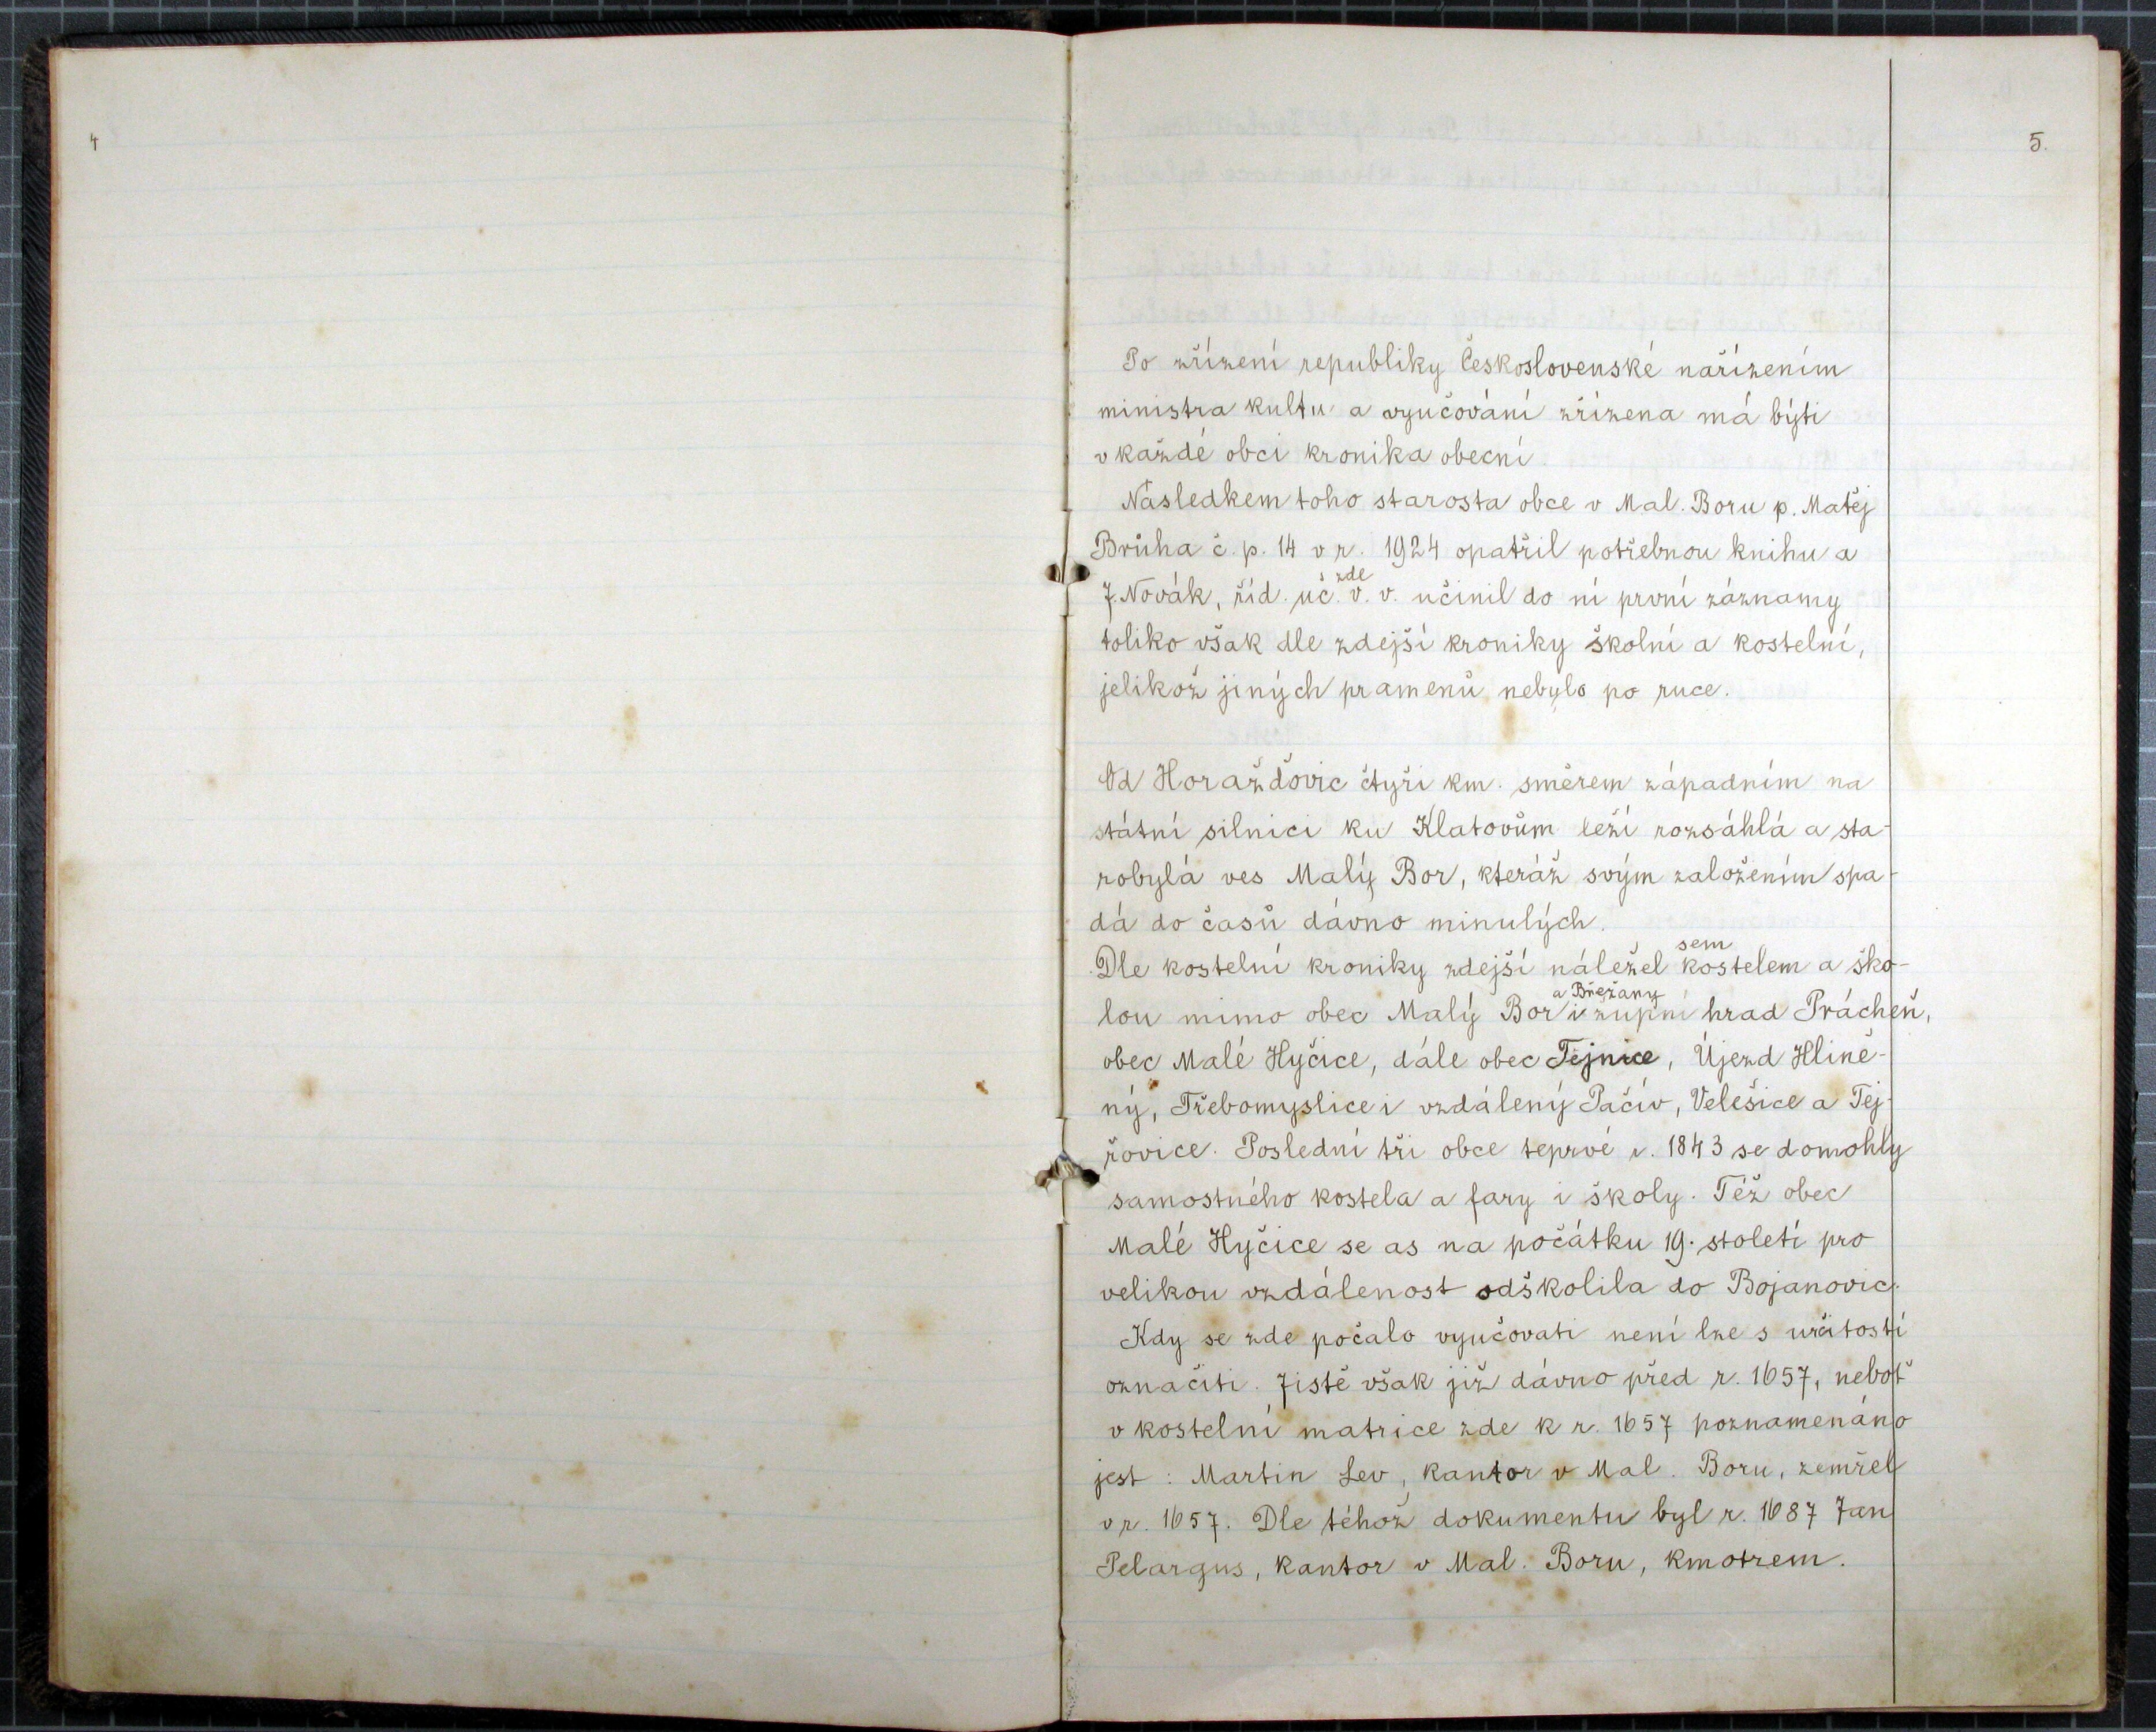 4
5.
Po zřízení republiky Československé nařízením
ministra kultu a vyučování zřízena má býti
v každé obci kronika obecní.
Následkem toho starosta obce v Mal. Boru p. Matěj
Brůha č. p. 14 v r. 1924 opatřil potřebnou knihu a
zde
J. Novák, říd. uč. v. v. učinil do ní první záznamy
toliko však dle zdejší kroniky školní a kostelní,
jelikož jiných pramenů nebylo po ruce.
Od Horažďovic čtyři km. směrem západním na
státní silnici ku Klatovům leží rozsáhlá a sta-
robylá ves Malý Bor, kteráž svým založením spa-
dá do časů dávno minulých.
sem
Dle kostelní kroniky zdejší náležel kostelem a ško-
a Břežany
lou mimo obec Malý Bor i župní hrad Prácheň,
obec Malé Hyčice, dále obec Tejnice, Újezd Hlině-
ný, Třebomyslice i vzdálený Pačiv, Velešice a Tej-
řovice. Poslední tři obce teprvé r. 1843 se domohly
samostného kostela a fary i školy. Též obec
Malé Hyčice se as na počátku 19. století pro
velikou vzdálenost odškolila do Bojanovic.
Kdy se zde počalo vyučovati není lze s určitostí
označiti. Jistě však již dávno před r. 1657, neboť
v kostelní matrice zde k r. 1657 poznamenáno
jest: Martin Lev, kantor v Mal. Boru, zemřel
v r. 1657. Dle téhož dokumentu byl r. 1687 Jan
Pelargus, kantor v Mal. Boru, kmotrem.